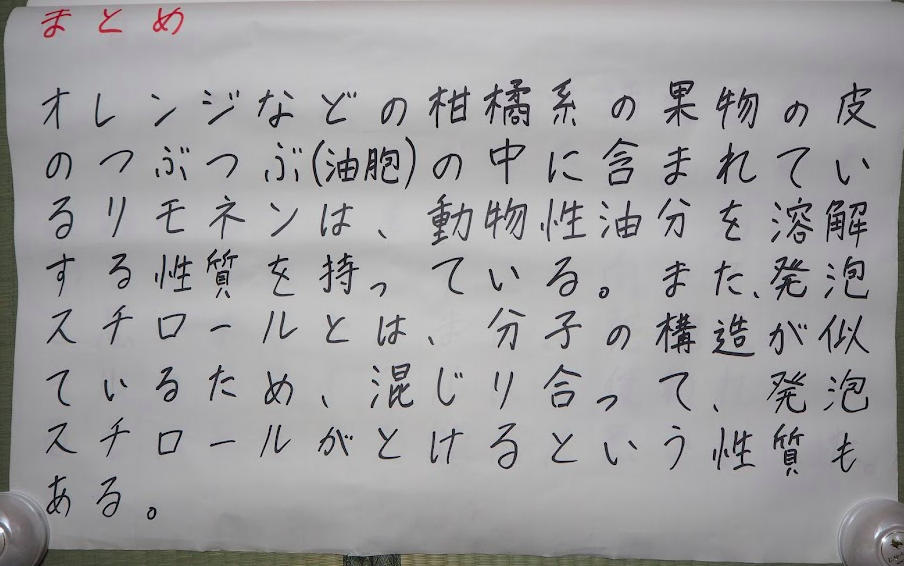 まとめ
オレンジなどの柑橘系の果物の皮
のつぶつぶ(油胞)の中に含まれてい
るリモネンは、動物性油分を溶解
する性質を持っている。また、発泡
スチロールとは、分子の構造が似
ているため、混じり合って、発泡
スチロールがとけるという性質も
ある。